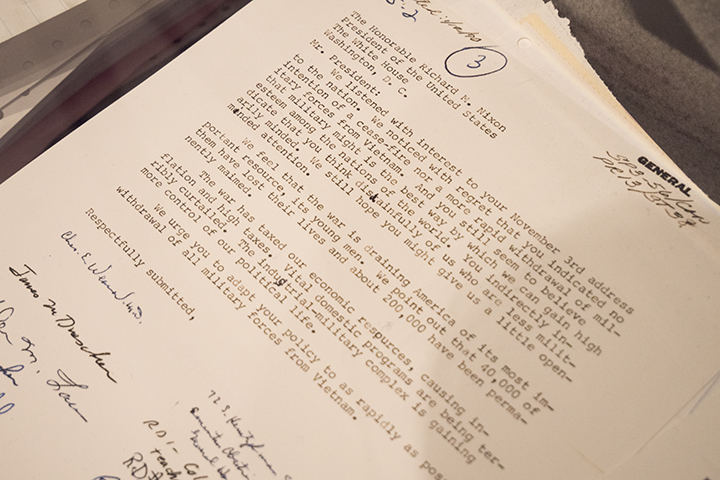 3
The Honorable Richard M. Nixon
President of the United States
The White House
Washington, D. C.
Mr. President:
We listened with interest to your November 3rd address
to the nation. We noticed with regret that you indicated no
intention of a cease-fire nor a more rapid withdrawal of mil-
itary forces from Vietnam. And you still seem to believe
that military might is the best way by which we can gain high
esteem among the nations of the world. You indirectly in-
dicate that you think disdainfully of us who are less milit-
arily minded. We still hope you might give us a little open-
minded attention.
We feel that the war is draining America of its most im-
portant resource, its young men. We point out that 40,000 of
them have lost their lives and about 200,000 have been perma-
nently maimed.
The war has taxed our economic resources, causing in-
flation and high taxes. Vital domestic programs are being ter-
ribly curtailed. The industrial-military complex is gaining
more control of our political life.
We urge you to adapt your policy to as rapidly as pos
withdrawal of all military forces from Vietnam.
Respectfully submitted,
GENERAL
James M.